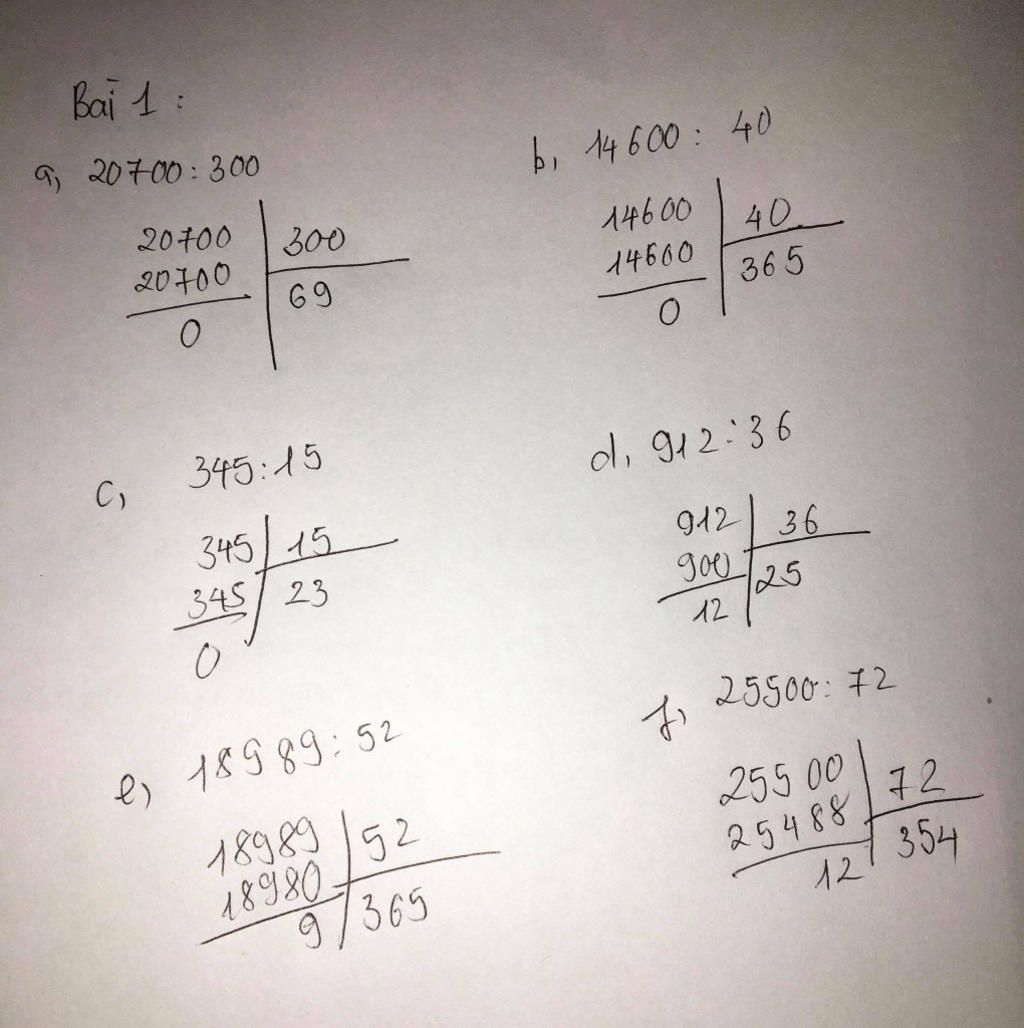 Bài 1 :
a, 20700 : 300
20700 300
20700 69
0
b, 14600 : 40
14600 40
14600 365
0
c, 345 : 15
345 15
345 23
0
d, 912 : 36
912 36
900 25
12
e, 18989 : 52
18989 52
18980 365
9
f, 25500 : 72
25500 72
25488 354
12